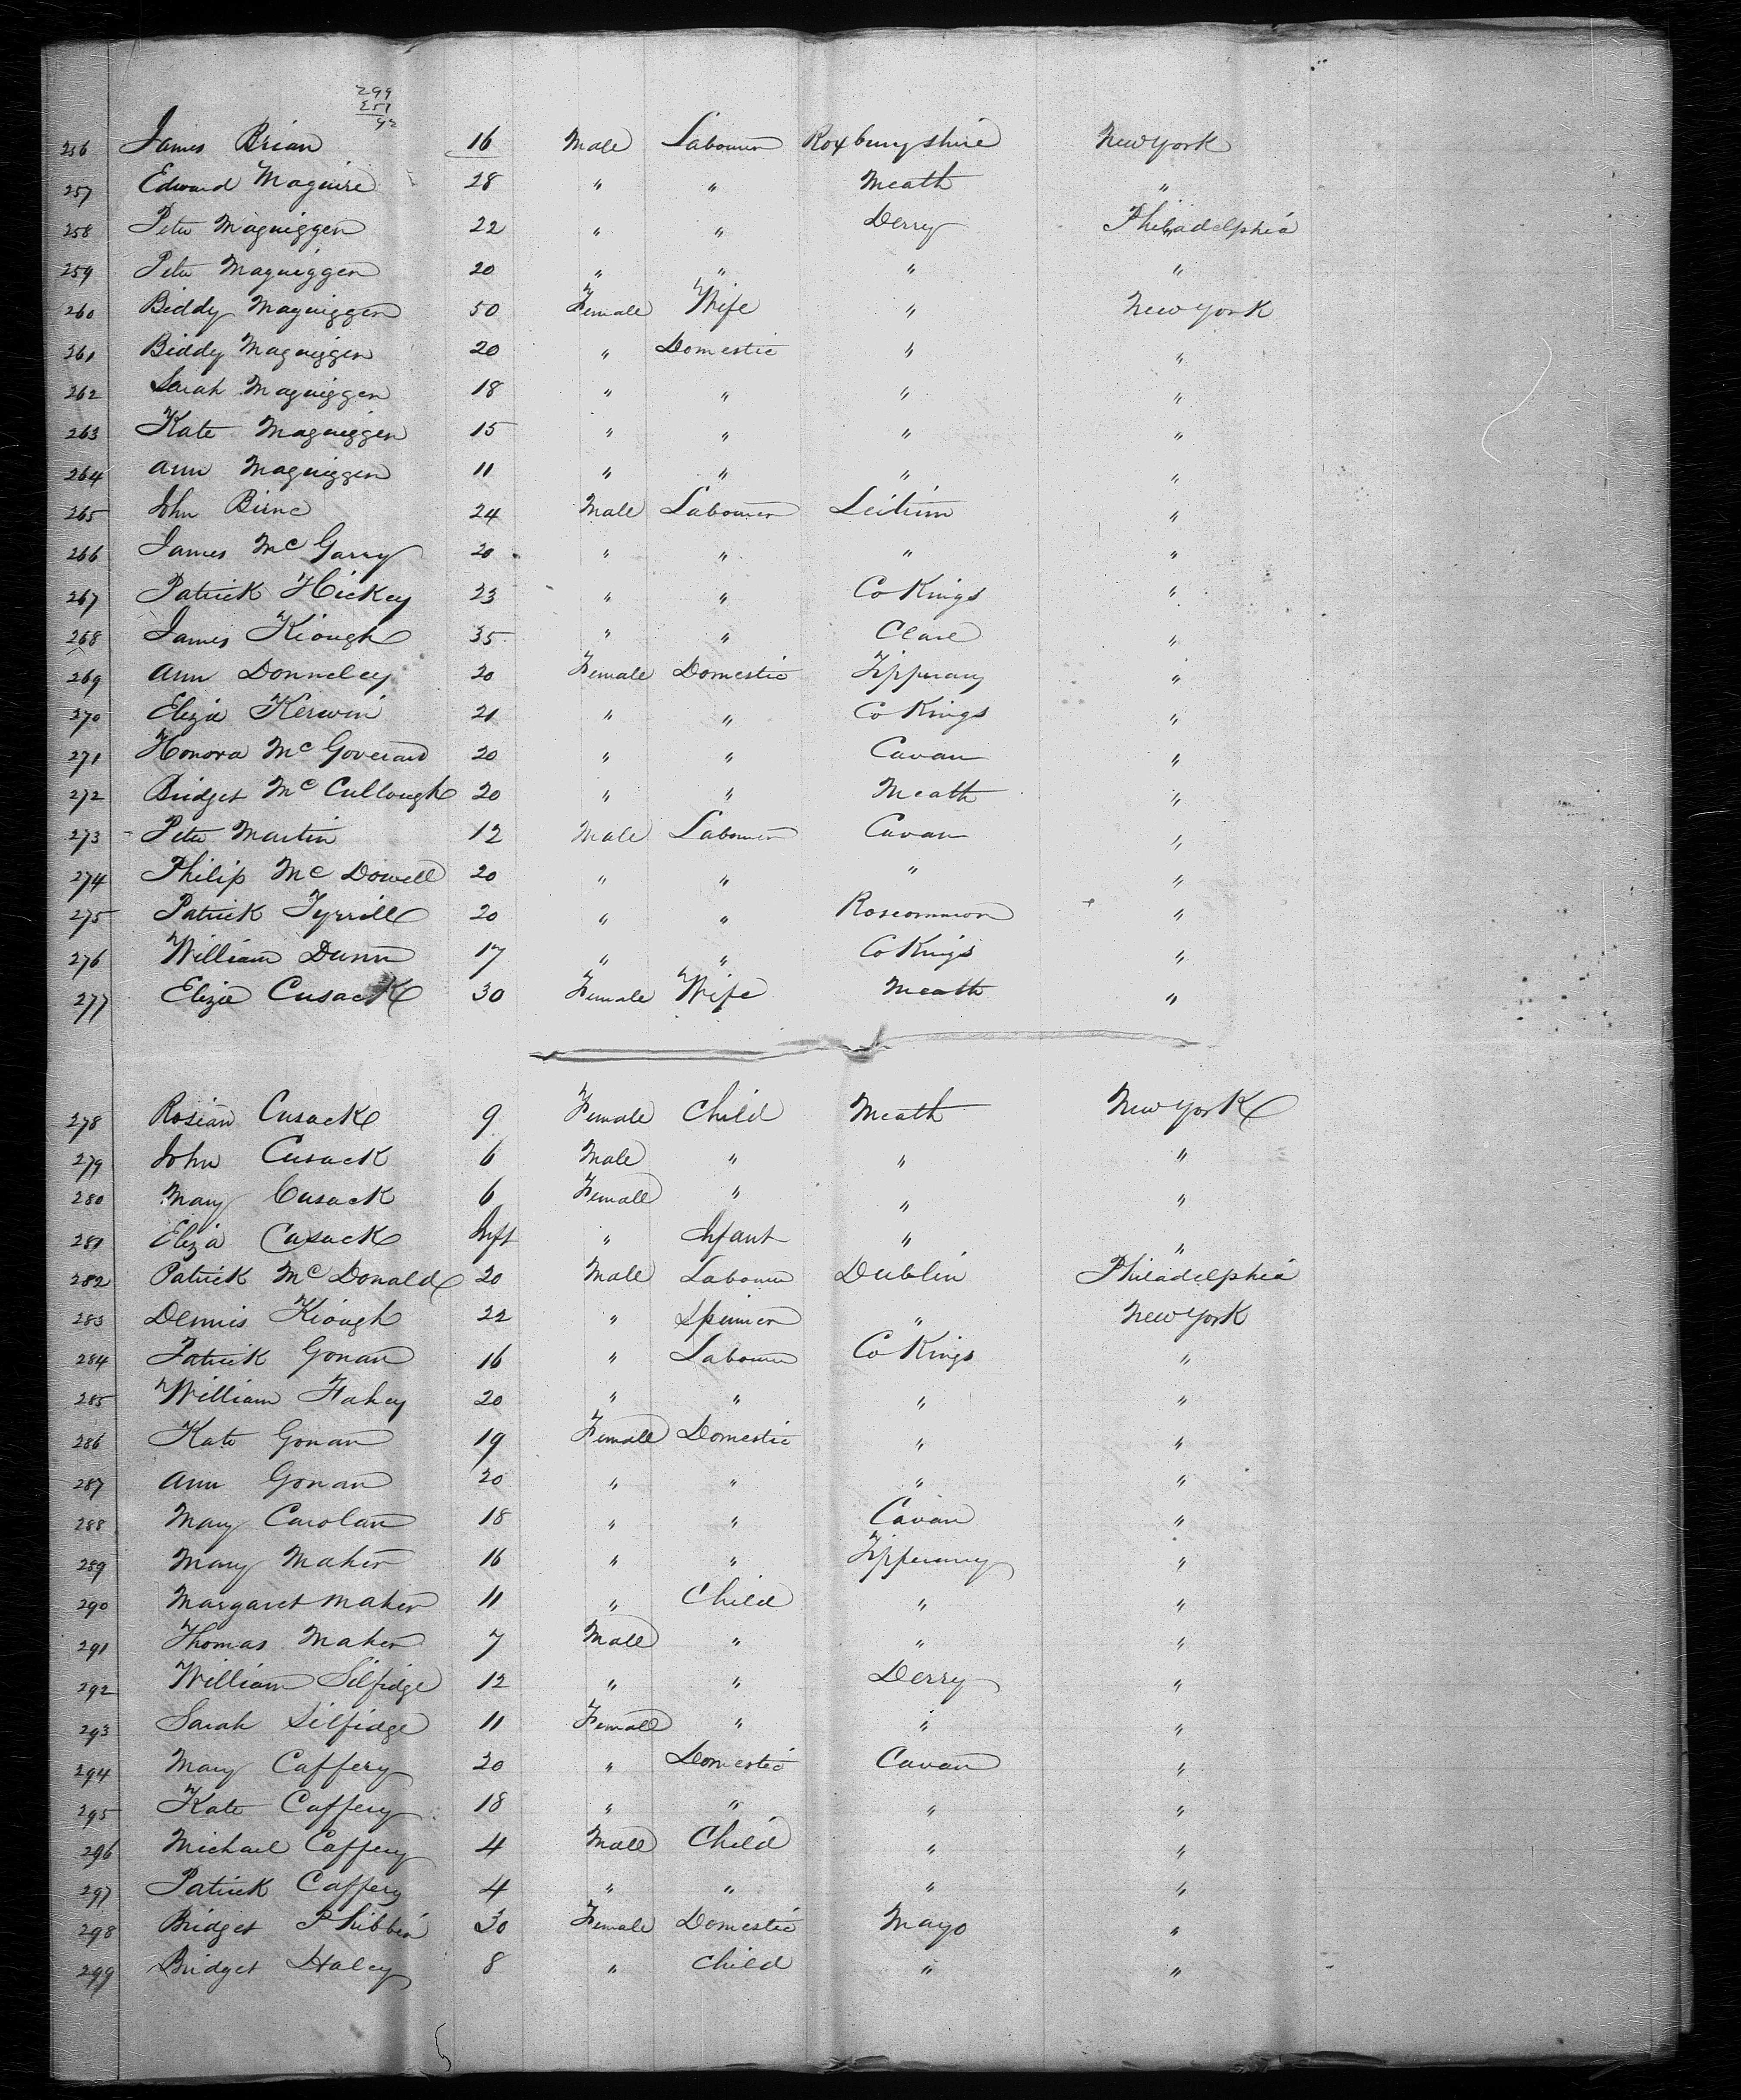 299
257
42
256 James Brian 16 Male Labourer Roxburyshire New York
257 Edward Maguire 28 " " Meath "
258 Peter Maguiggen 22 " " Derry Philadelphia
259 Peter Maguiggen 20 " " " "
260 Biddy Maguiggen 50 Female Wife " New York
261 Biddy Maguiggen 20 " Domestic " "
262 Sarah Maguiggen 18 " " " "
263 Kate Maguiggen 15 " " " "
264 Ann Maguiggen 11 " " " "
265 John Birne 24 Male Labourer Leitrim "
266 James McGarry 20 " " " "
267 Patrick Hickey 23 " " Co Kings "
268 James Kiough 35 " " Clare "
269 Ann Donneley 20 Female Domestic Tipperary "
270 Eliza Kerwin 21 " " Co Kings "
271 Honora McGoverand 20 " " Cavan "
272 Bridget McCullough 20 " " Meath "
273 Peter Martin 12 Male Labourer Cavan "
274 Philip McDowell 20 " " " "
275 Patrick Tyrrill 20 " " Roscommon "
276 William Dunn 17 " " Co Kings "
277 Eliza Cusack 30 Female Wife Meath "
278 Rosian Cusack 9 Female Child Meath New York
279 John Cusack 6 Male " " "
280 Mary Cusack 6 Female " " "
281 Eliza Cusack Inft " Infant " "
282 Patrick McDonald 20 Male Labourer Dublin Philadelphia
283 Dennis Kiough 22 " Spinner " New York
284 Patrick Gonan 16 " Labourer Co Kings "
285 William Fahey 20 " " " "
286 Kate Gonan 19 Female Domestic " "
287 Ann Gonan 20 " " " "
288 Mary Carolan 18 " " Cavan "
289 Mary Maher 16 " " Tipperary "
290 Margaret Maher 11 " Child " "
291 Thomas Maher 7 Male " " "
292 William Silfidge 12 " " Derry "
293 Sarah Silfidge 11 Female " " "
294 Mary Caffery 20 " Domestic Cavan "
295 Kate Caffery 18 " " " "
296 Michael Caffery 4 Male Child " "
297 Patrick Caffery 4 " " " "
298 Bridget Phibbin 30 Female Domestic Mayo "
299 Bridget Haley 8 " Child " "